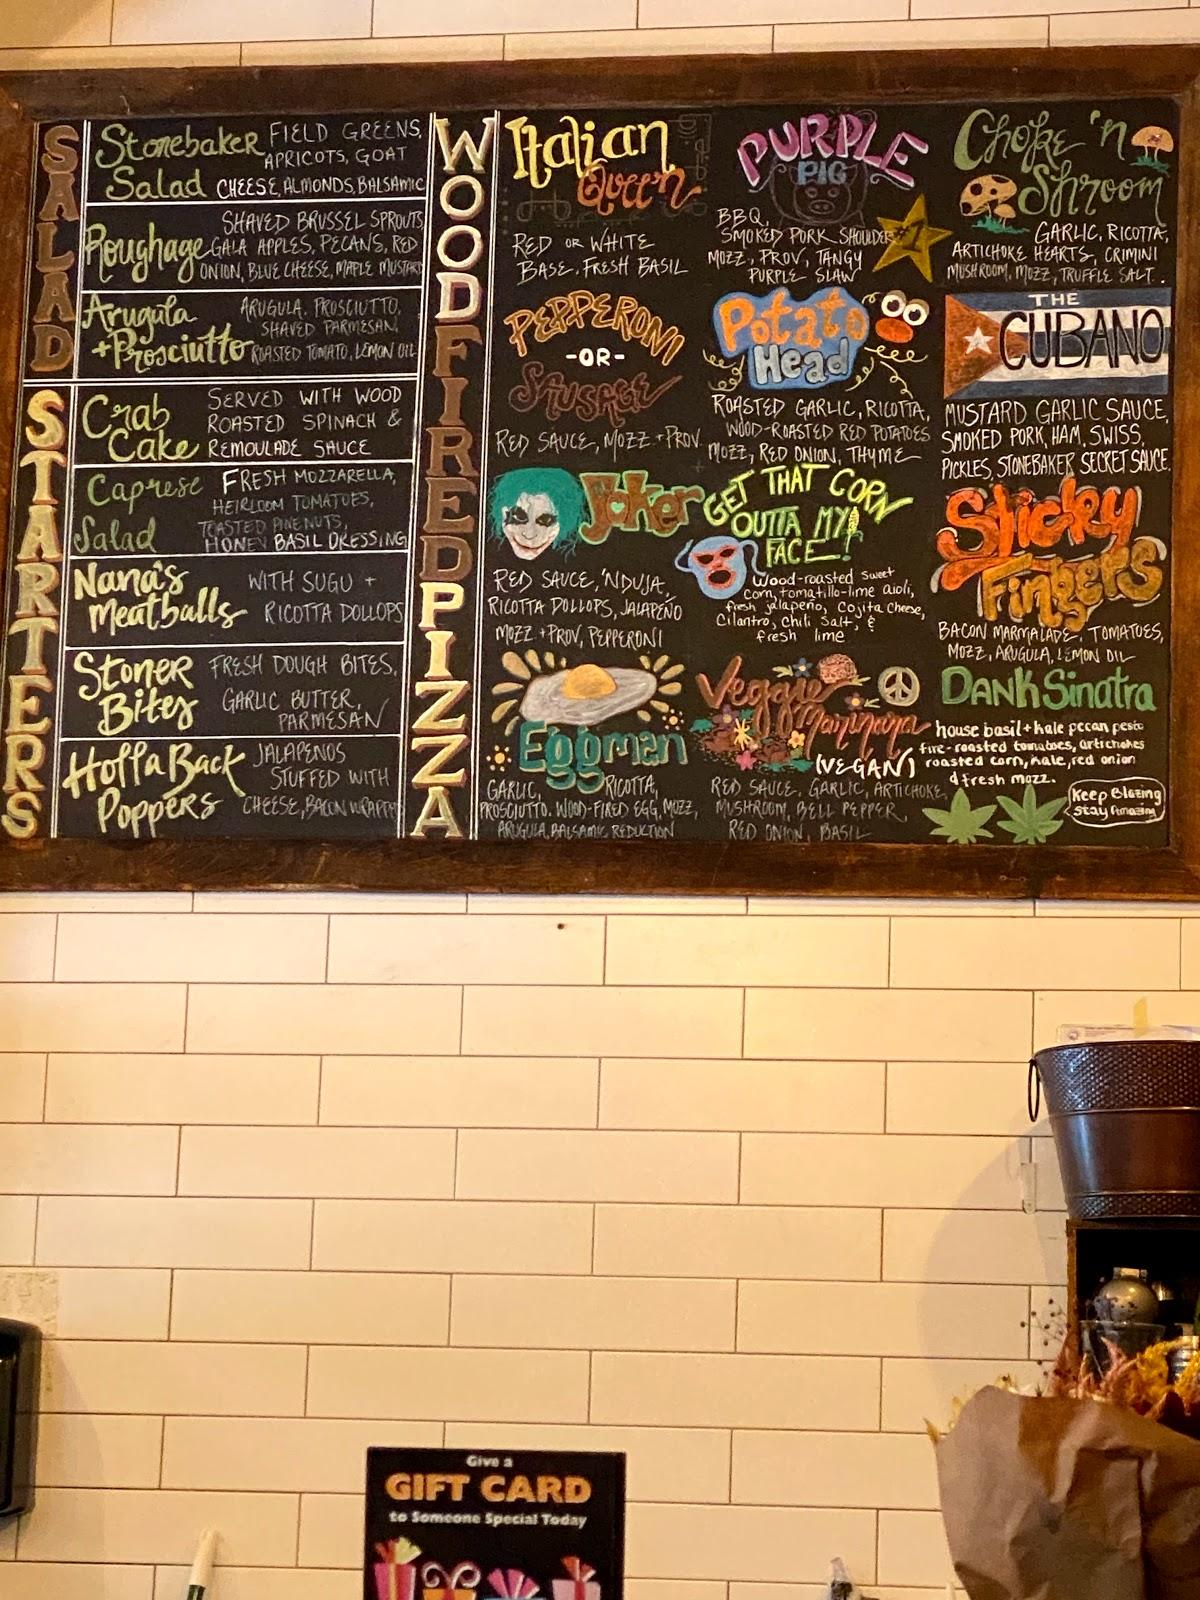 SALAD
Stonebaker Salad
FIELD GREENS,
APRICOTS, GOAT
CHEESE, ALMONDS, BALSAMIC
Roughage
SHAVED BRUSSEL SPROUTS,
GALA APPLES, PECANS, RED
ONION, BLUE CHEESE, MAPLE MUSTARD
Arugula
+Prosciutto
ARUGULA, PROSCIUTTO,
SHAVED PARMESAN,
ROASTED TOMATO, LEMON OIL
STARTERS
Crab
Cake
SERVED WITH WOOD
ROASTED SPINACH &
REMOULADE SAUCE
Caprese
Salad
FRESH MOZZARELLA,
HEIRLOOM TOMATOES,
TOASTED PINENUTS,
HONEY BASIL DRESSING
Nana's
Meatballs
WITH SUGU +
RICOTTA DOLLOPS
Stoner
Bites
FRESH DOUGH BITES,
GARLIC BUTTER,
PARMESAN
Holla Back
Poppers
JALAPENOS
STUFFED WITH
CHEESE, BACON WRAPPED
WOOD FIRED PIZZA
Italian
Queen
RED OR WHITE
BASE, FRESH BASIL
PEPPERONI
-OR-
SAUSAGE
RED SAUCE, MOZZ + PROV
Joker
RED SAUCE, 'NDUJA,
RICOTTA DOLLOPS, JALAPEÑO
MOZZ + PROV, PEPPERONI
Eggman
GARLIC, RICOTTA,
PROSCIUTTO, WOOD-FIRED EGG, MOZZ,
ARUGULA, BALSAMIC REDUCTION
PURPLE
PIG
#1
BBQ,
SMOKED PORK SHOULDER
MOZZ, PROV, TANGY
PURPLE SLAW
Potato
Head
ROASTED GARLIC, RICOTTA,
WOOD-ROASTED RED POTATOES
MOZZ, RED ONION, THYME
GET THAT CORN
OUTTA MY
FACE!
Wood-roasted sweet
corn, tomatillo-lime aioli,
fresh jalapeño, Cojita Cheese,
Cilantro, Chili Salt, &
fresh lime
Veggie
Maninana
(VEGAN)
RED SAUCE, GARLIC, ARTICHOKE,
MUSHROOM, BELL PEPPER
RED ONION, BASIL
Choke 'n
Shroom
GARLIC, RICOTTA,
ARTICHOKE HEARTS, CRIMINI
MUSHROOM, MOZZ, TRUFFLE SALT.
THE
CUBANO
MUSTARD GARLIC SAUCE,
SMOKED PORK, HAM, SWISS,
PICKLES, STONEBAKER SECRET SAUCE.
Sticky
Fingers
BACON MARMALADE, TOMATOES,
MOZZ, ARUGULA, LEMON OIL
DANK Sinatra
house basil + kale pecan pesto
fire-roasted tomatoes, artichokes
roasted corn, kale, red onion
& fresh mozz.
Keep Blazing
Stay Amazing
Give a
GIFT CARD
to Someone Special Today